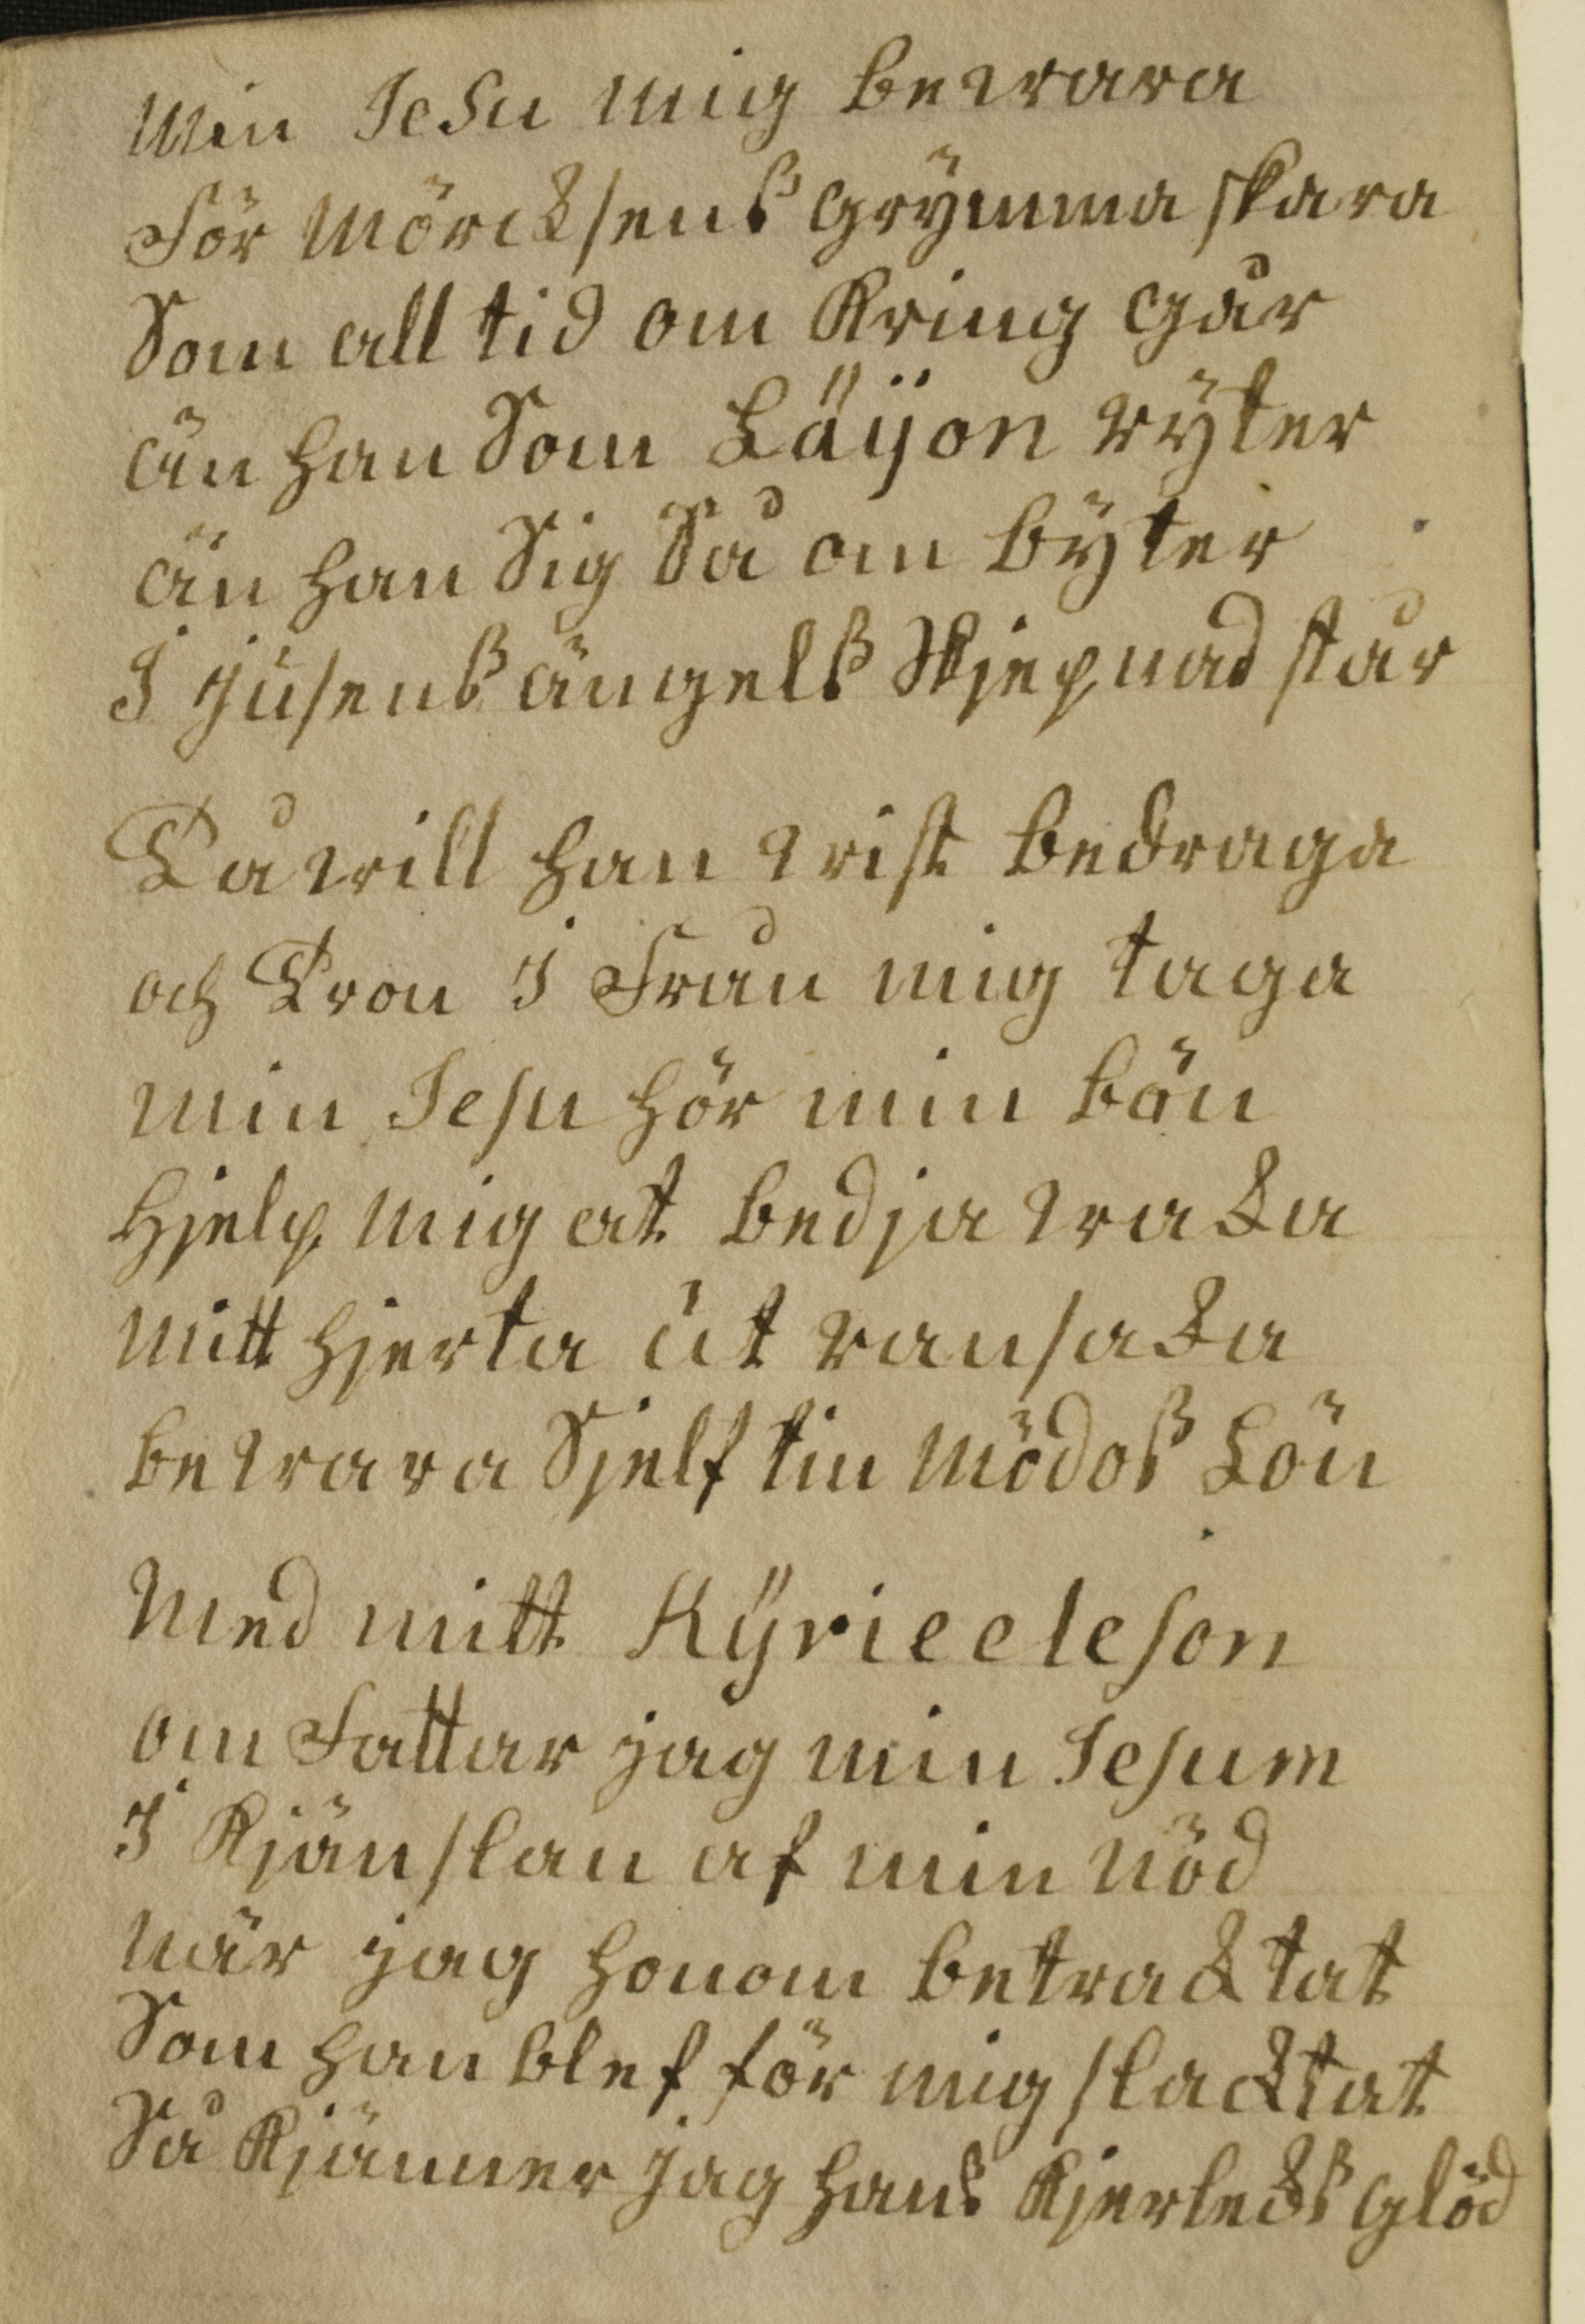 Min JeSu mig bewara
För Mörcksens grÿmma skara
Som all tid om Kring går
än han Som Läijon rÿter
än han Sig Så om bÿter
I jusens ängels Skjepnad står
Då will han wist bedraga
och Tron I Från mig taga
min Jesu hör min bön
Hjelp mig at bedja waka
mitt hjerta ut ransaka
bewara Sjelf tin Mödos Lön
Med mitt Kÿrieeleson
om Fattar jag min Jesum
I Kjänslan af min Nöd
När jag honom betracktat
Som han blef för mig slacktat
Så Kjänner jag hans Kjerleks glöd